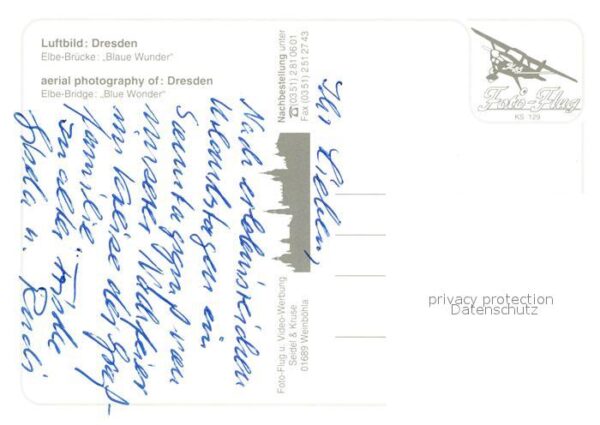 Luftbild: Dresden
Elbe-Brücke: „Blaue Wunder"
aerial photography of: Dresden
Elbe-Bridge: „Blue Wonder"
Nachbestellung unter
☎(0351) 2 81 06 01
Fax (03 51) 2 51 27 43
Foto-Flug
KS 129
Foto-Flug u. Video-Werbung
Seidel & Kruse
01689 Weinböhla
Ihr Lieben!
Nach erlebnisreichen
Urlaubstagen ein
Sonntagsgruß von
unserer Nachfeier
im Kreise der Groß-
familie"
In alter Frische
u. Rudi
privacy protection
Datenschutz